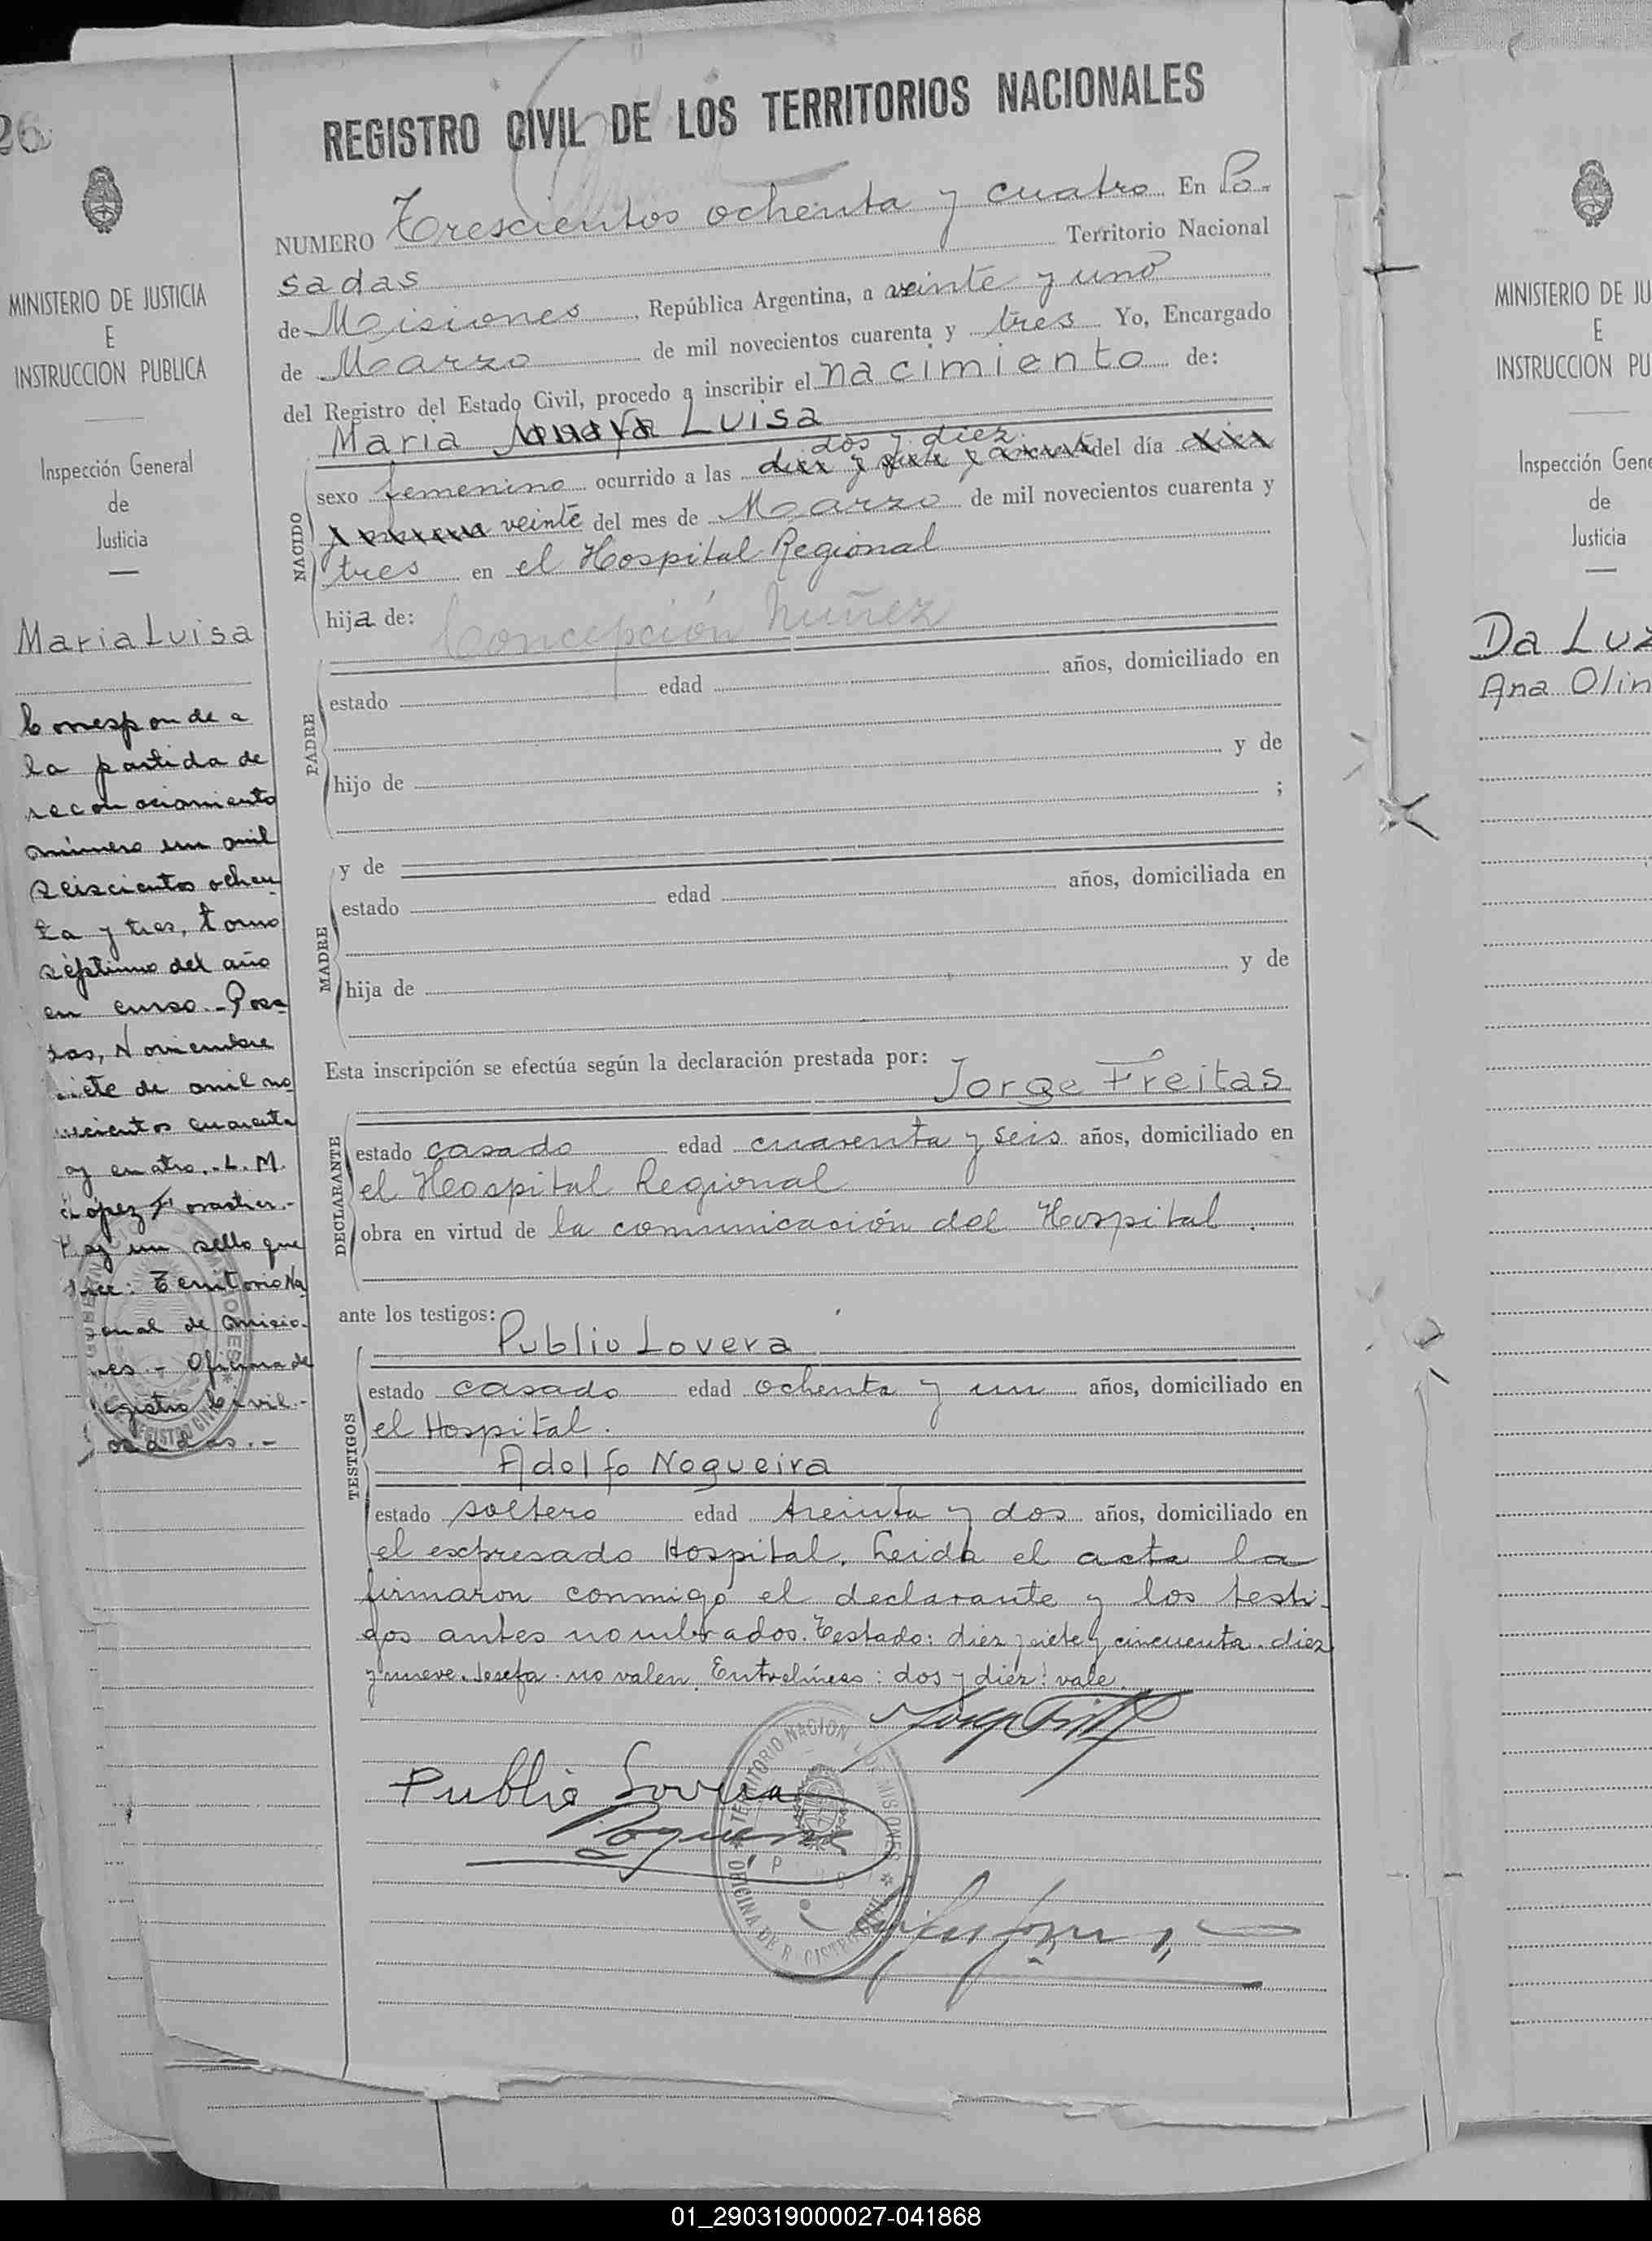 26
MINISTERIO DE JUSTICIA
E
INSTRUCCION PUBLICA
Inspección General
de
Justicia
Maria Luisa
Corresponde a
la partida de
reconocimiento
número un mil
seiscientos ochen
ta y tres, tomo
séptimo del año
en curso.- Posa
das, Noviembre
siete de mil no
vecientos cuarenta
y cuatro.- L. M.
López Forastier.-
Hay un sello que
dice: Territorio Na
cional de Misio-
nes.- Oficina de
Registro Civil.-
Posadas.-
REGISTRO CIVIL DE LOS TERRITORIOS NACIONALES
NUMERO Trescientos ochenta y cuatro En Po-
sadas Territorio Nacional
de Misiones, República Argentina, a veinte y uno
de Marzo de mil novecientos cuarenta y tres Yo, Encargado
del Registro del Estado Civil, procedo a inscribir el nacimiento de:
Maria Luisa
dos y diez
sexo femenino ocurrido a las diez y siete y del día diez
veinte del mes de Marzo de mil novecientos cuarenta y
tres en el Hospital Regional
NACIDO
hija de: Concepción Nuñez
estado edad años, domiciliado en
PADRE
hijo de y de
;
y de
estado edad años, domiciliada en
MADRE
hija de y de
Esta inscripción se efectúa según la declaración prestada por:
Jorge Freitas
estado casado edad cuarenta y seis años, domiciliado en
el Hospital Regional
DECLARANTE
obra en virtud de la comunicación del Hospital.
ante los testigos:
Publio Lovera
estado casado edad ochenta y un años, domiciliado en
el Hospital.
TESTIGOS
Adolfo Nogueira
estado soltero edad treinta y dos años, domiciliado en
el expresado Hospital. Leida el acta la
firmaron conmigo el declarante y los testi-
gos antes nombrados. Testado: diez y siete y cincuenta. diez
y nueve. Josefa. no valen. Entrelíneas: dos y diez: vale.
Publio Lovera
Nogueira
TERRITORIO NACIONAL DE MISIONES
OFICINA DE REGISTRO CIVIL
MINISTERIO DE JU
E
INSTRUCCION PU
Inspección Gene
de
Justicia
Da Luz
Ana Olin
01_290319000027-041868